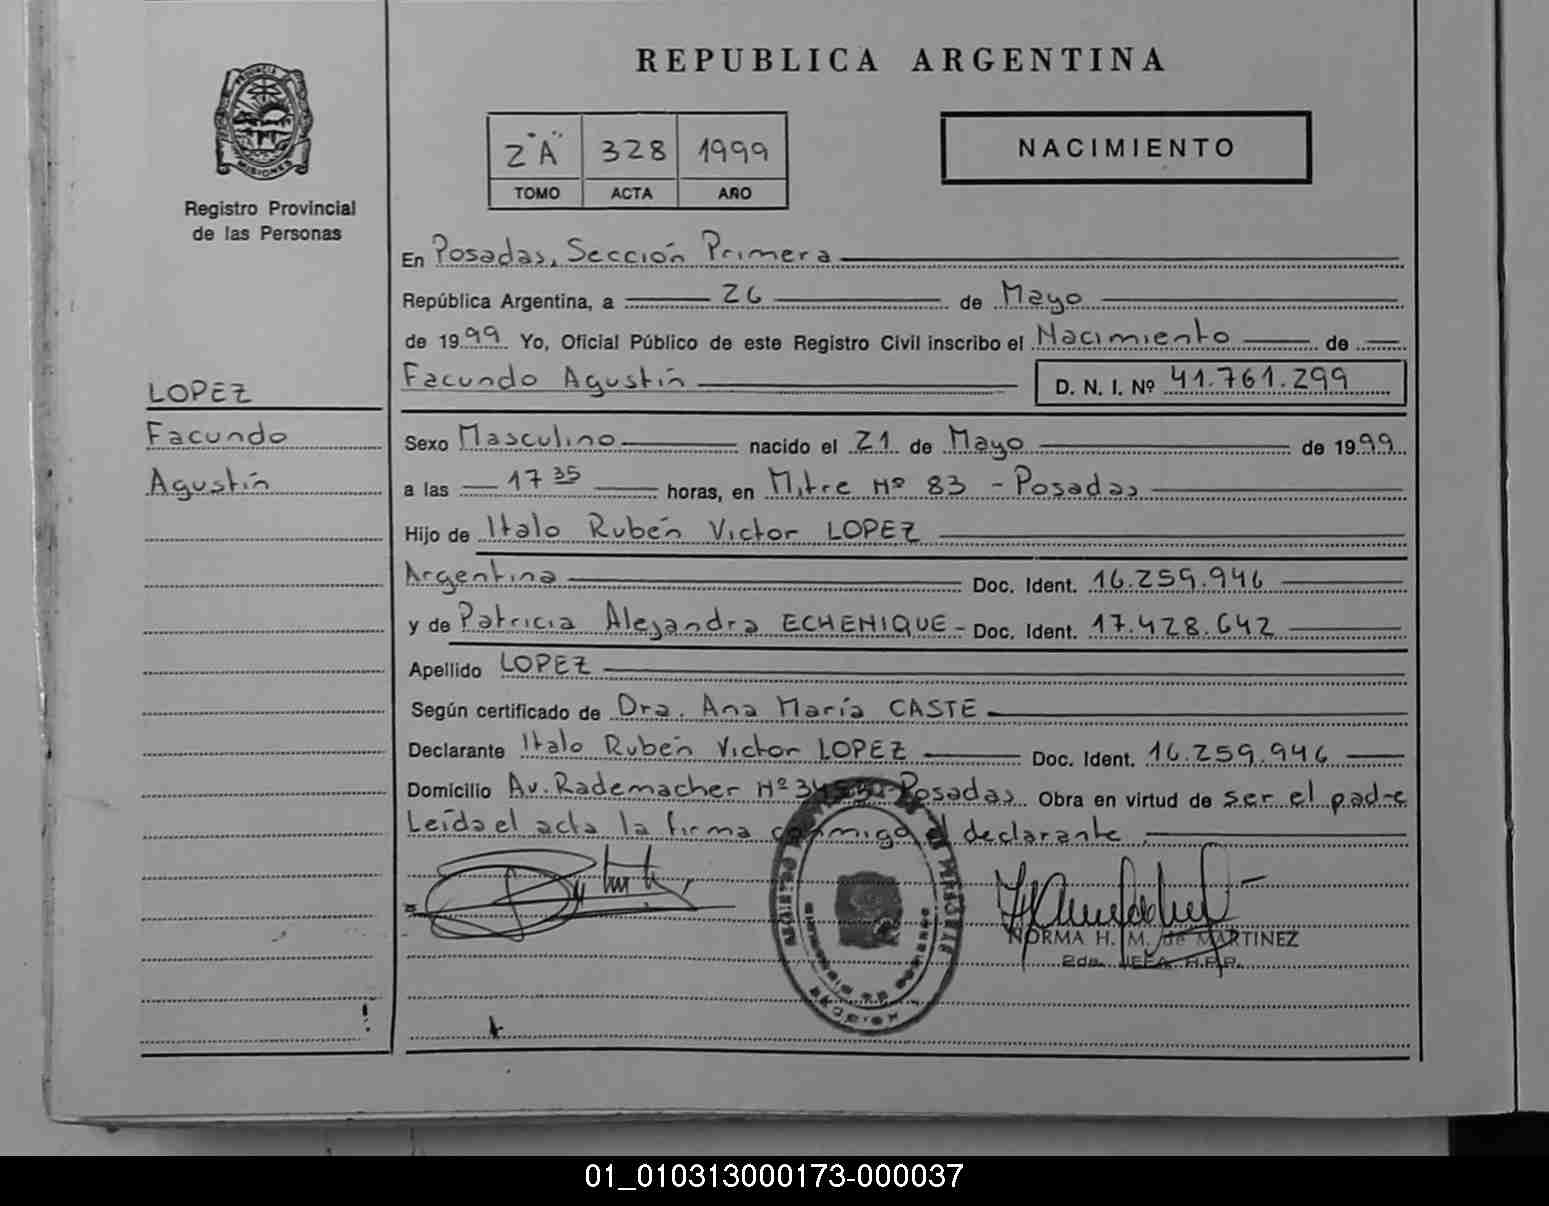 REPUBLICA ARGENTINA
PROVINCIA DE
MISIONES
Registro Provincial
de las Personas
2 "A" 328 1999
TOMO ACTA AÑO
NACIMIENTO
En Posadas, Sección Primera
República Argentina, a 26 de Mayo
de 1999 Yo, Oficial Público de este Registro Civil inscribo el Nacimiento de
Facundo Agustín D. N. I. Nº 41.761.299
LOPEZ
Facundo
Agustín
Sexo Masculino nacido el 21 de Mayo de 1999
a las 17 35 horas, en Mitre Nº 83 - Posadas
Hijo de Italo Rubén Victor LOPEZ
Argentina Doc. Ident. 16.259.946
y de Patricia Alejandra ECHENIQUE - Doc. Ident. 17.428.642
Apellido LOPEZ
Según certificado de Dra. Ana María CASTE
Declarante Italo Rubén Victor LOPEZ Doc. Ident. 16.259.946
Domicilio Av. Rademacher Nº Posadas Obra en virtud de ser el padre
Leída el acta la firma conmigo el declarante.
NORMA H. M. de MARTINEZ
2da. JEFA R.P.P.
01_010313000173-000037